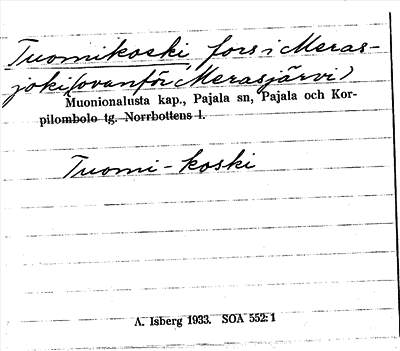 Tuomikoski, fors i Meras-
joki (ovanför Merasjärvi)
Muonionalusta kap., Pajala sn, Pajala och Kor-
pilombolo tg. Norrbottens l.
Tuomi-koski
A. Isberg 1933. SOA 552: 1